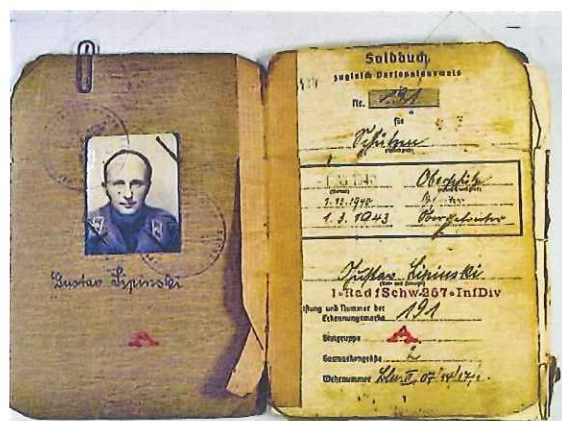 Gustav Lipinski
A
Soldbuch
zugleich Personalausweis
Nr. 191
für
Schützen
Oberschütze
1.12.1940
1.3.1943 Obergefreiter
Gustav Lipinski
1·Radf Schw·267·InfDiv
und Nummer der
Erkennungsmarke 191
Blutgruppe A
Gasmaskengröße 2
Wehrnummer